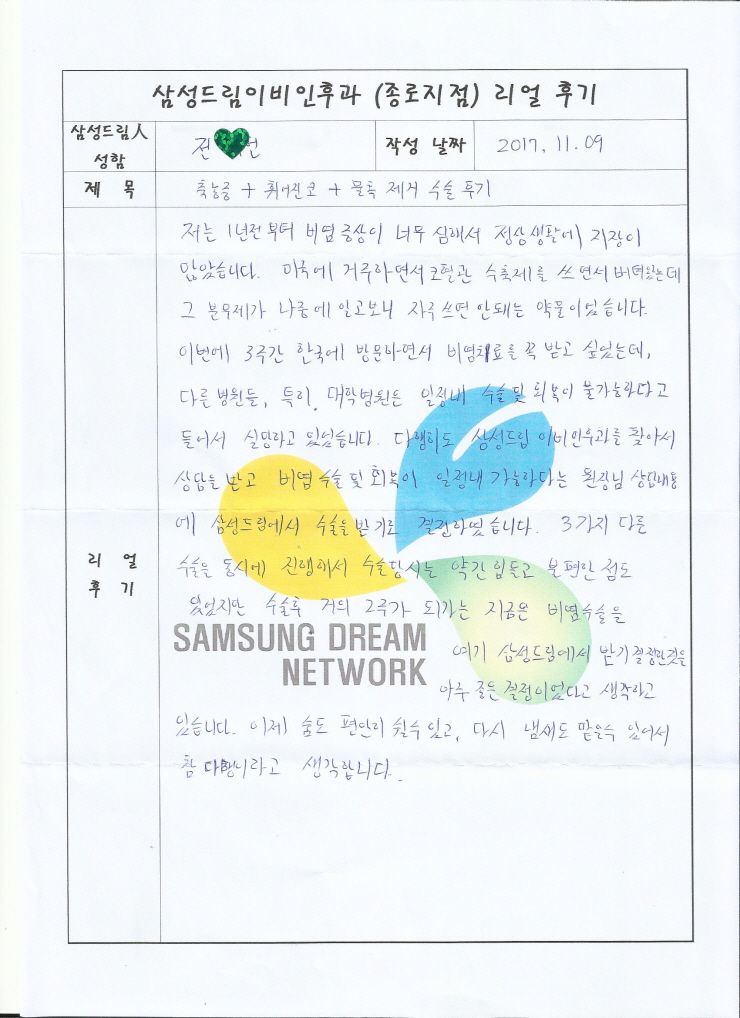 삼성드림이비인후과 (종로지점) 리얼 후기
삼성드림人
성함
전 언
작성 날짜
2017. 11. 09
제 목
축농증 + 휘어진 코 + 물혹 제거 수술 후기
리 얼
후 기
저는 1년전부터 비염 증상이 너무 심해서 정상생활에 지장이
많았습니다. 미국에 거주하면서 코혈관 수축제를 쓰면서 버텨왔는데
그 분무제가 나중에 알고보니 자주 쓰면 안돼는 약물이었습니다.
이번에 3주간 한국에 방문하면서 비염치료를 꼭 받고 싶었는데,
다른 병원들, 특히, 대학병원은 일정내 수술 및 회복이 불가능하다고
들어서 실망하고 있었습니다. 다행히도 삼성드림 이비인후과를 찾아서
상담을 받고 비염수술 및 회복이 일정내 가능하다는 원장님 상담내용
에 삼성드림에서 수술을 받기로 결정하였습니다. 3가지 다른
수술을 동시에 진행해서 수술당시는 약간 힘들고 불편한 점도
있었지만 수술후 거의 2주가 되가는 지금은 비염수술을
여기 삼성드림에서 받기 결정한것을
아주 좋은 결정이었다고 생각하고
있습니다. 이제 숨도 편안히 쉴수 있고, 다시 냄새도 맡을수 있어서
참 다행이라고 생각합니다.
SAMSUNG DREAM
NETWORK